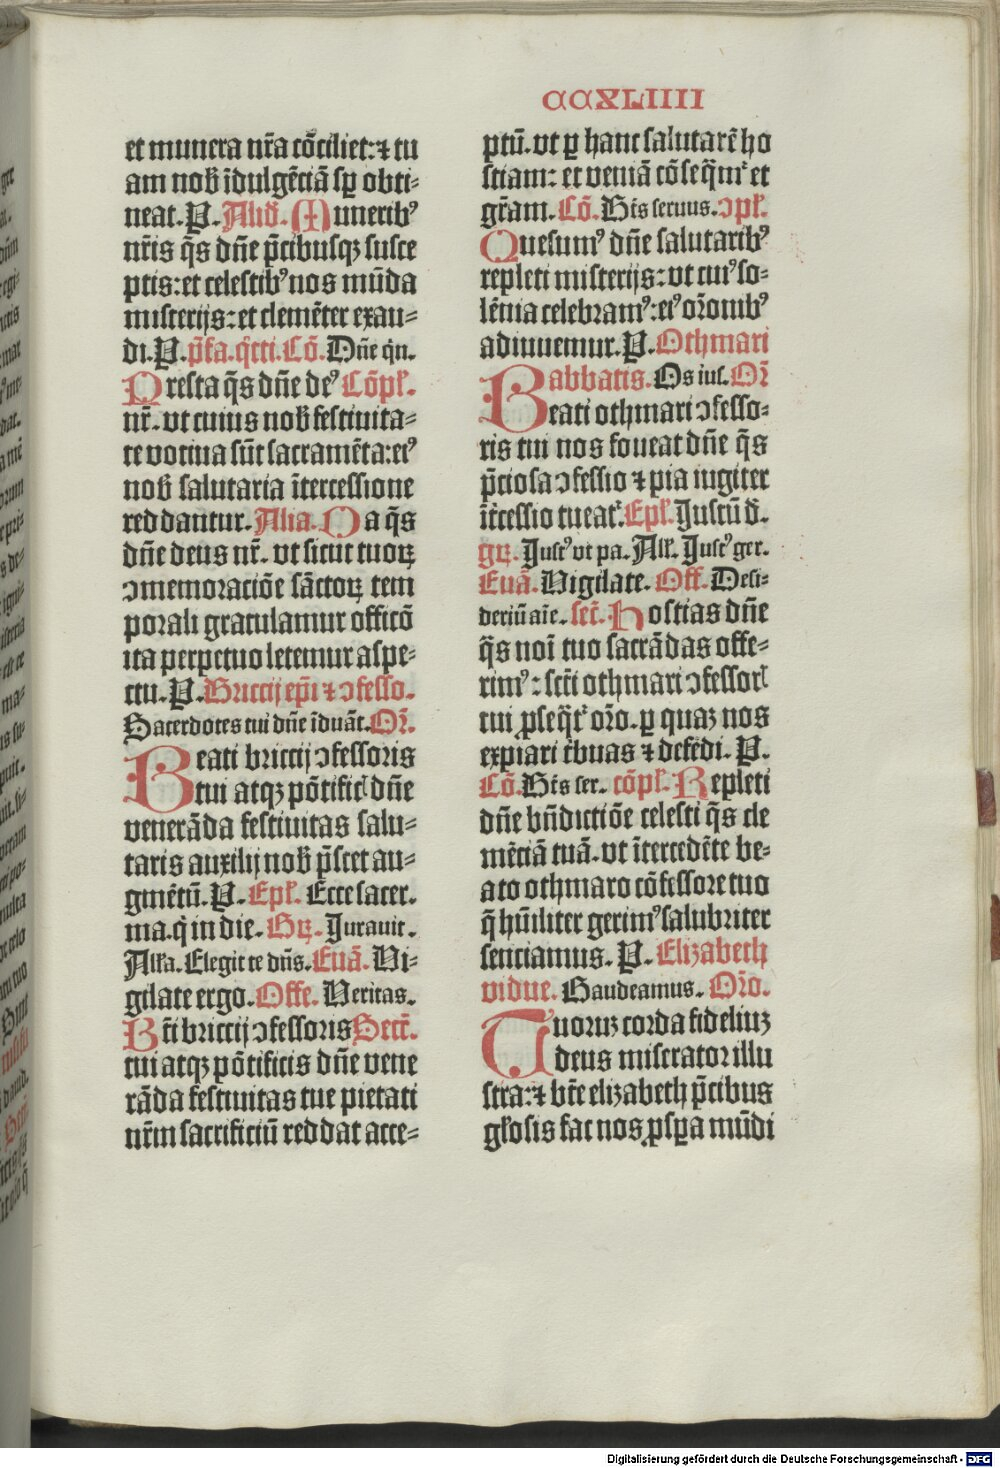 CCXLIIII
et munera nr̄a cō̄ciliet: ⁊ tu
am nob̄ īdulgētiā sꝑ obti⸗
neat. P. Aliđ. Munerib⁹
nr̄is q̄s dn̄e p̄cibusqꝫ susce
ptis: et celestib⁹ nos mūda
misterijs: et clemēter exau⸗
di. P. p̄fa. q̄tti. Cō. Dn̄e qn̄.
Presta q̄s dn̄e de⁹ Cōpł.
nr̄. vt cuius nob̄ festiuita⸗
te votiua sūt sacramēta: ei⁹
nob̄ salutaria ītercessione
reddantur. Alia. Da q̄s
dn̄e deus nr̄. vt sicut tuoꝝ
ↄmemoraciōe sāctoꝝ tem
porali gratulamur officō
ita perpetuo letemur aspe⸗
ctu. P. Briccij ep̄i ⁊ ↄfesso.
Sacerdotes tui dn̄e īduāt. Or̄.
Beati briccij ↄfessoris
tui atqꝫ pōtificꝭ dn̄e
venerāda festiuitas salu⸗
taris auxilij nob̄ p̄stet au⸗
gmētū. P. Epł. Ecce sacer.
ma. q̇ in die. Gꝝ. Jurauit.
Alła. Elegit te dn̄s. Euā. Vi⸗
gilate ergo. Offe. Veritas.
Bt̄i briccij ↄfessoris Secr̄.
tui atqꝫ pōtificis dn̄e vene
rāda festiuitas tue pietati
nr̄m sacrificiū reddat acce⸗
ptū. vt ꝑ hanc salutarē ho
stiam: et veniā cōseq̄m̄ et
gr̄am. Cō. Btūs seruus. ↄpł.
Quesum⁹ dn̄e salutarib⁹
repleti misterijs: vt cui⁹ so⸗
lēnia celebram⁹: ei⁹ or̄onib⁹
adiuuemur. P. Othmari
abbatis. Os ius. Or̄
Beati othmari ↄfesso⸗
ris tui nos foueat dn̄e q̄s
p̄ciosa ↄfessio ⁊ pia iugiter
īt̄cessio tueat᷑. Epł. Justū đ.
gꝝ. Just⁹ vt pa. Ałł. Just⁹ ger.
Euā. Vigilate. Off. Desi⸗
deriū aīe. secr̄. Hostias dn̄e
q̄s noī tuo sacrādas offe⸗
rim⁹: scti othmari ↄfessorꝭ
tui ꝓseq̄t᷑ or̄o. ꝑ quaꝫ nos
expiari tʼbuas ⁊ defēdi. P.
Cō. Btūs ser. cōpł. Repleti
dn̄e bn̄dictiōe celesti q̄s cle
mētiā tuā. vt ītercedēte be⸗
ato othmaro cōfessore tuo
q̄ hūiliter gerim⁹ salubriter
senciamus. P. Elizabeth
vidue. Gaudeamus. Or̄o.
Tuoruꝫ corda fideliuꝫ
deus miserator illu
stra: ⁊ bt̄e elizabeth p̄cibus
głosis fac nos ꝓspa mūdi
Digitalisierung gefördert durch die Deutsche Forschungsgemeinschaft - DFG